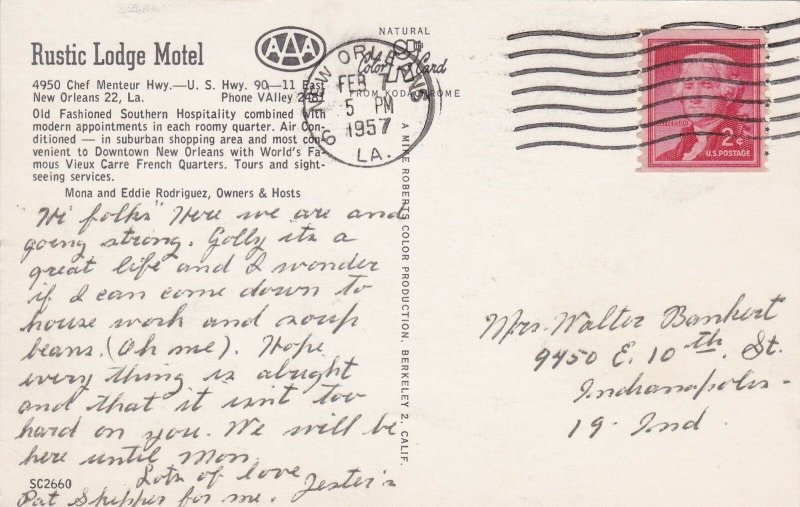 Rustic Lodge Motel
AAA
4950 Chef Menteur Hwy.—U. S. Hwy. 90—11 East
New Orleans 22, La. Phone VAlley
Old Fashioned Southern Hospitality combined with
modern appointments in each roomy quarter. Air Con-
ditioned — in suburban shopping area and most con-
venient to Downtown New Orleans with World's Fa-
mous Vieux Carre French Quarters. Tours and sight-
seeing services.
Mona and Eddie Rodriguez, Owners & Hosts
Hi folks" Here we are and
going strong. Golly its a
great life and I wonder
if I can come down to
house work and soup
beans. (Oh me). Hope
every thing is alright
and that it isn't too
hard on you. We will be
here until Mon.
Lots of love
Jester's
Pat Skipper for me.
SC2660
NATURAL
Color Card
FROM KODACHROME
NEW ORLEANS
FEB
5 PM
1957
LA.
A MIKE ROBERTS COLOR PRODUCTION. BERKELEY 2, CALIF.
JEFFERSON
2¢
U.S. POSTAGE
Mrs. Walter Bankert
9450 E. 10th. St.
Indianapolis-
19. Ind.